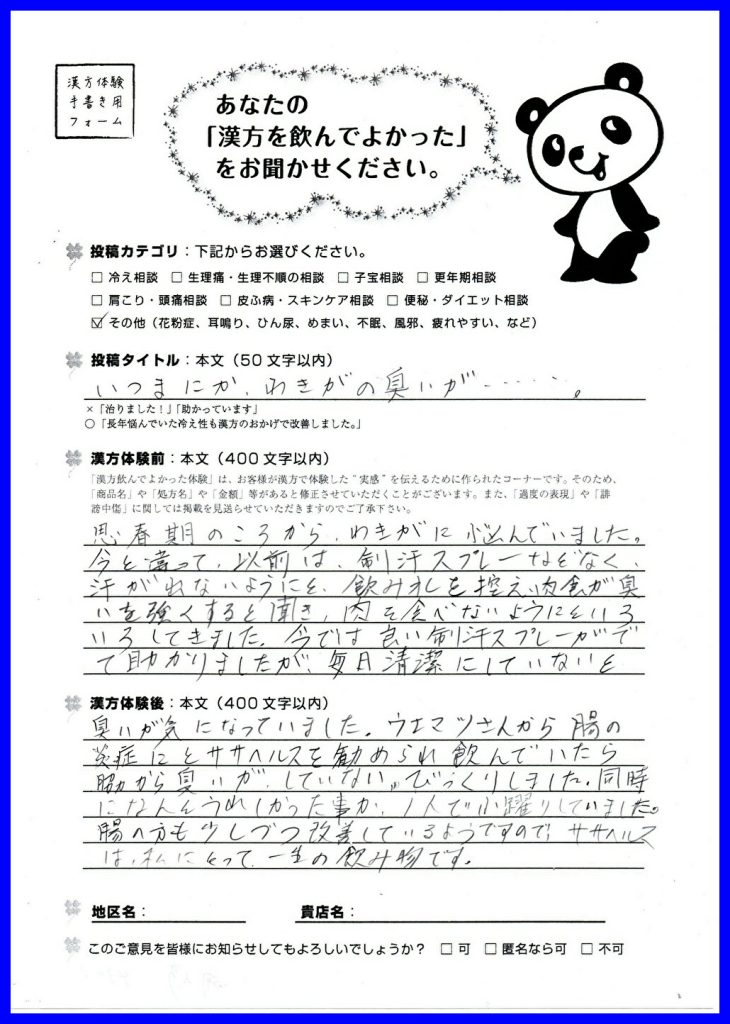 漢方体験
手書き用
フォーム
あなたの
「漢方を飲んでよかった」
をお聞かせください。
投稿カテゴリ：下記からお選びください。
□ 冷え相談 □ 生理痛・生理不順の相談 □ 子宝相談 □ 更年期相談
□ 肩こり・頭痛相談 □ 皮ふ病・スキンケア相談 □ 便秘・ダイエット相談
☑ その他（花粉症、耳鳴り、ひん尿、めまい、不眠、風邪、疲れやすい、など）
投稿タイトル：本文（50文字以内）
いつまにか、わきがの臭いが‥‥‥。
×「治りました！」「助かっています」
○「長年悩んでいた冷え性も漢方のおかげで改善しました。」
漢方体験前：本文（400文字以内）
「漢方飲んでよかった体験」は、お客様が漢方で体験した“実感”を伝えるために作られたコーナーです。そのため、
「商品名」や「処方名」や「金額」等があると修正させていただくことがございます。また、「過度の表現」や「誹
謗中傷」に関しては掲載を見送らせていただきますのでご了承下さい。
思春期のころから、わきがに悩んでいました。
今と違って、以前は、制汗スプレーなどなく、
汗がれないようにと、飲み水を控え、肉食が臭
いを強くすると聞き、肉を食べないようにといろ
いろしてきました。今では良い制汗スプレーがで
て助かりましたが、毎日清潔にしていないと
漢方体験後：本文（400文字以内）
臭いが気になっていました。ウエマツさんから腸の
炎症にとササヘルスを勧められ飲んでいたら
脇から臭いが、していない。びっくりしました。同時
になんとうれしかった事か、1人で小躍りしていました。
腸の方も少しづつ改善しているようですので、ササヘルス
は、私にとって、一生の飲み物です。
地区名： 貴店名：
このご意見を皆様にお知らせしてもよろしいでしょうか？ □ 可 □ 匿名なら可 □ 不可